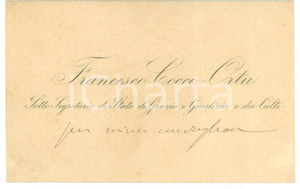 Francesco Cocci Ortu
Sotto Segretario di Stato di Grazia e Giustizia e dei Culti
per